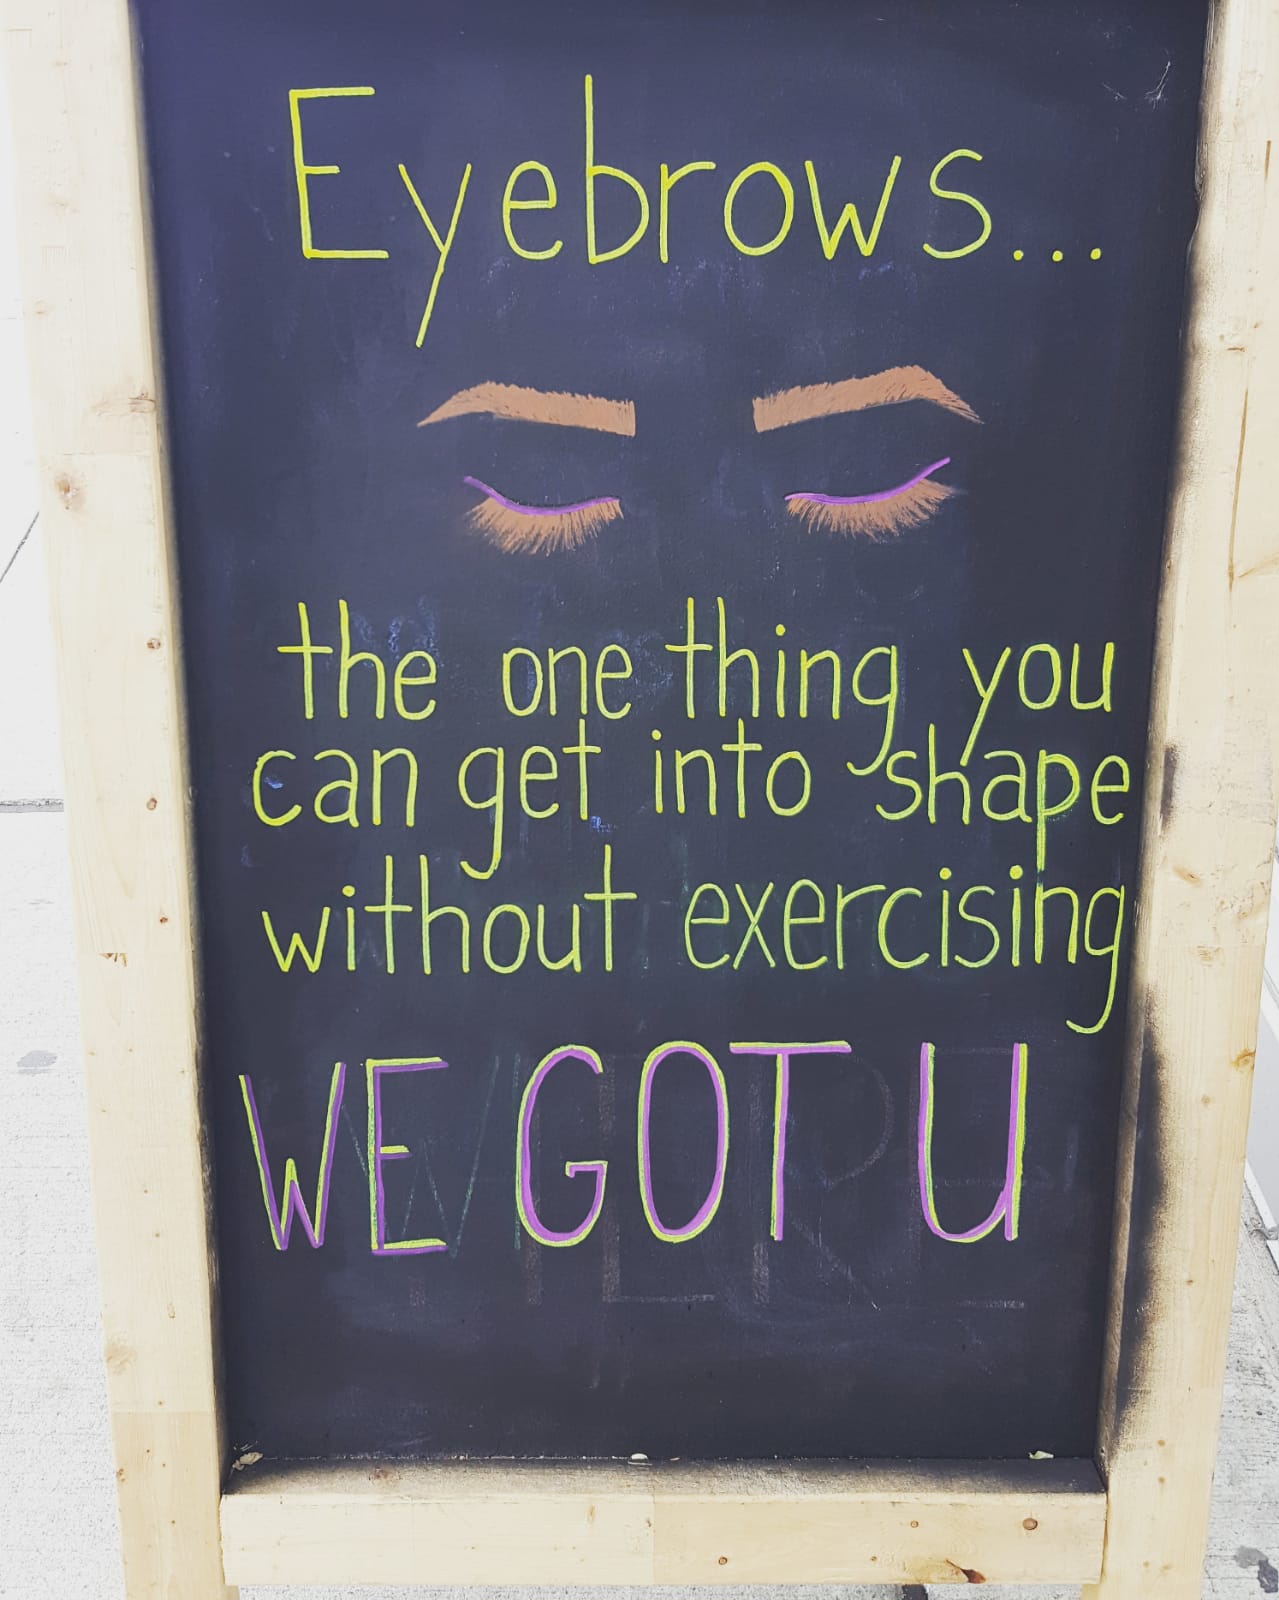 Eyebrows...
the one thing you
can get into shape
without exercising
WE GOT U